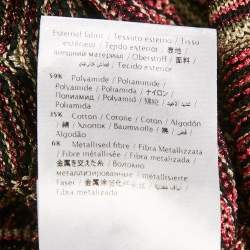 External fabric / Tessuto esterno / Tissu
extérieur / Tejido exterior / 表地 /
внешний материал / Oberstoff / 面料 /
/ Tecido exterior
59%  Polyamide / Poliammide /
Polyamide / Poliamida / ナイロン /
Полиамид / Polyamid / 锦纶 /
/ Poliamida
35%  Cotton / Cotone / Coton / Algodón
/ 綿 / Хлопок / Baumwolle / 棉 /
Algodão
6%  Metallised fibre / Fibra metallizzata
/ Fibre métallisée / Fibra metalizada /
金属を交えた糸 / Волокно
металлизированное / metallisierte
Faser /
Fibra metalizada